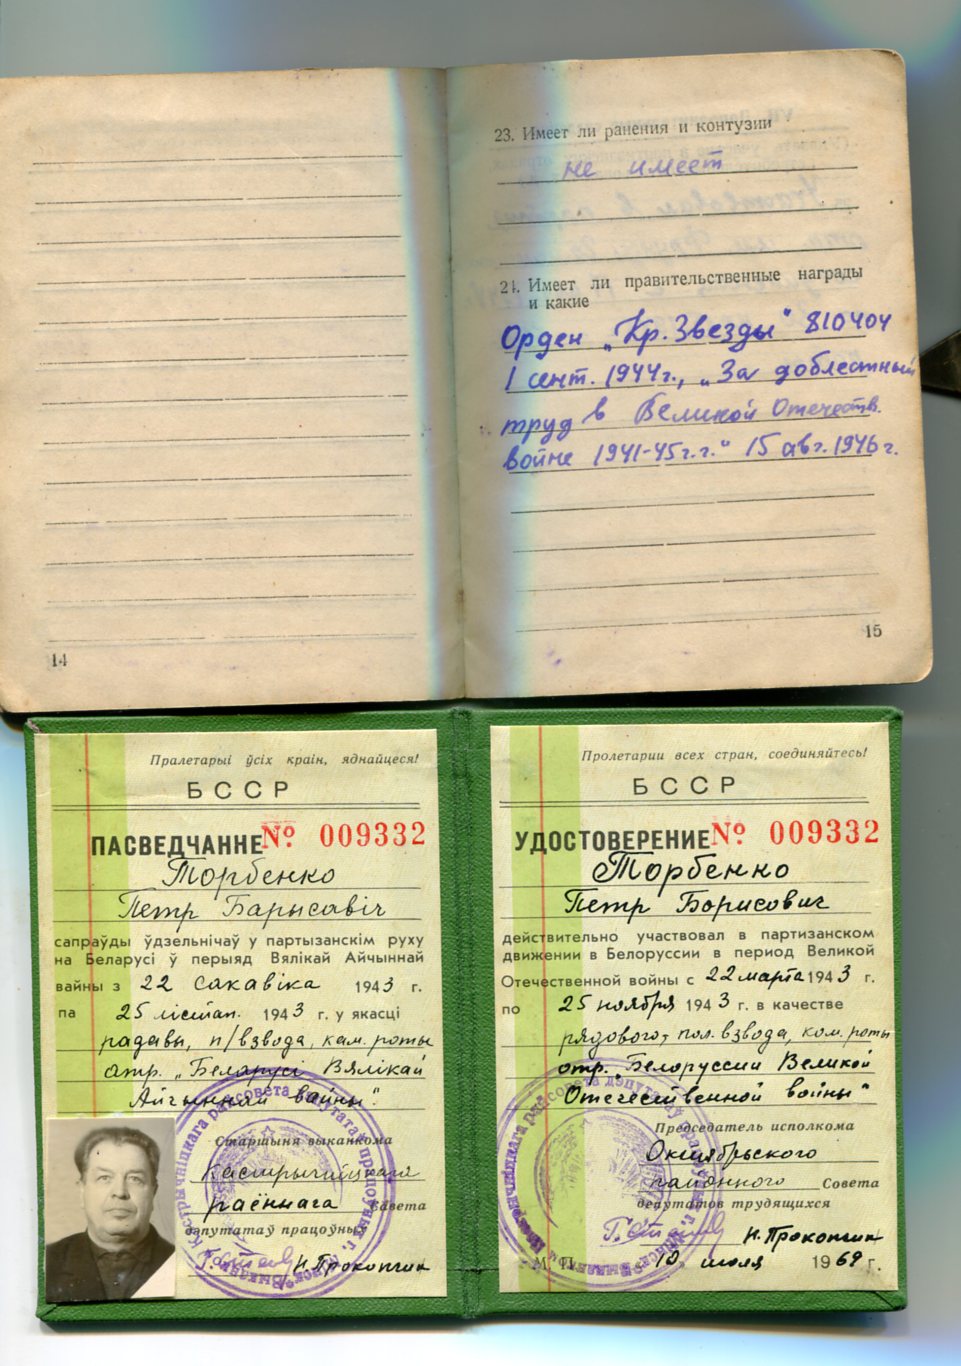 14
23. Имеет ли ранения и контузии
не имеет
24. Имеет ли правительственные награды
и какие
Орден „Кр. Звезды" 810404
1 сент. 1944г., „За доблестный
труд в Великой Отечеств.
войне 1941-45г.г." 15 авг. 1946г.
15
Пралетарыі ўсіх краін, яднайцеся!
БССР
ПАСВЕДЧАННЕ № 009332
Торбенко
Петр Барысавіч
сапраўды ўдзельнічаў у партызанскім руху
на Беларусі ў перыяд Вялікай Айчыннай
вайны з 22 сакавіка 1943 г.
па 25 лістап. 1943 г. у якасці
радавы, п/взвода, кам. роты
атр. „Беларусі Вялікай
Айчыннай вайны"
Старшыня выканкома
Кастрычніцкага
раённага Савета
дэпутатаў працоўных
Н. Прокопчик
Пролетарии всех стран, соединяйтесь!
БССР
УДОСТОВЕРЕНИЕ № 009332
Торбенко
Петр Борисович
действительно участвовал в партизанском
движении в Белоруссии в период Великой
Отечественной войны с 22 марта 1943 г.
по 25 ноября 1943 г. в качестве
рядового, пол. взвода, ком. роты
отр. „Белоруссии Великой
Отечественной войны"
Председатель исполкома
Октябрьского
районного Совета
депутатов трудящихся
Н. Прокопчик
М. П. 10 июля 1969 г.